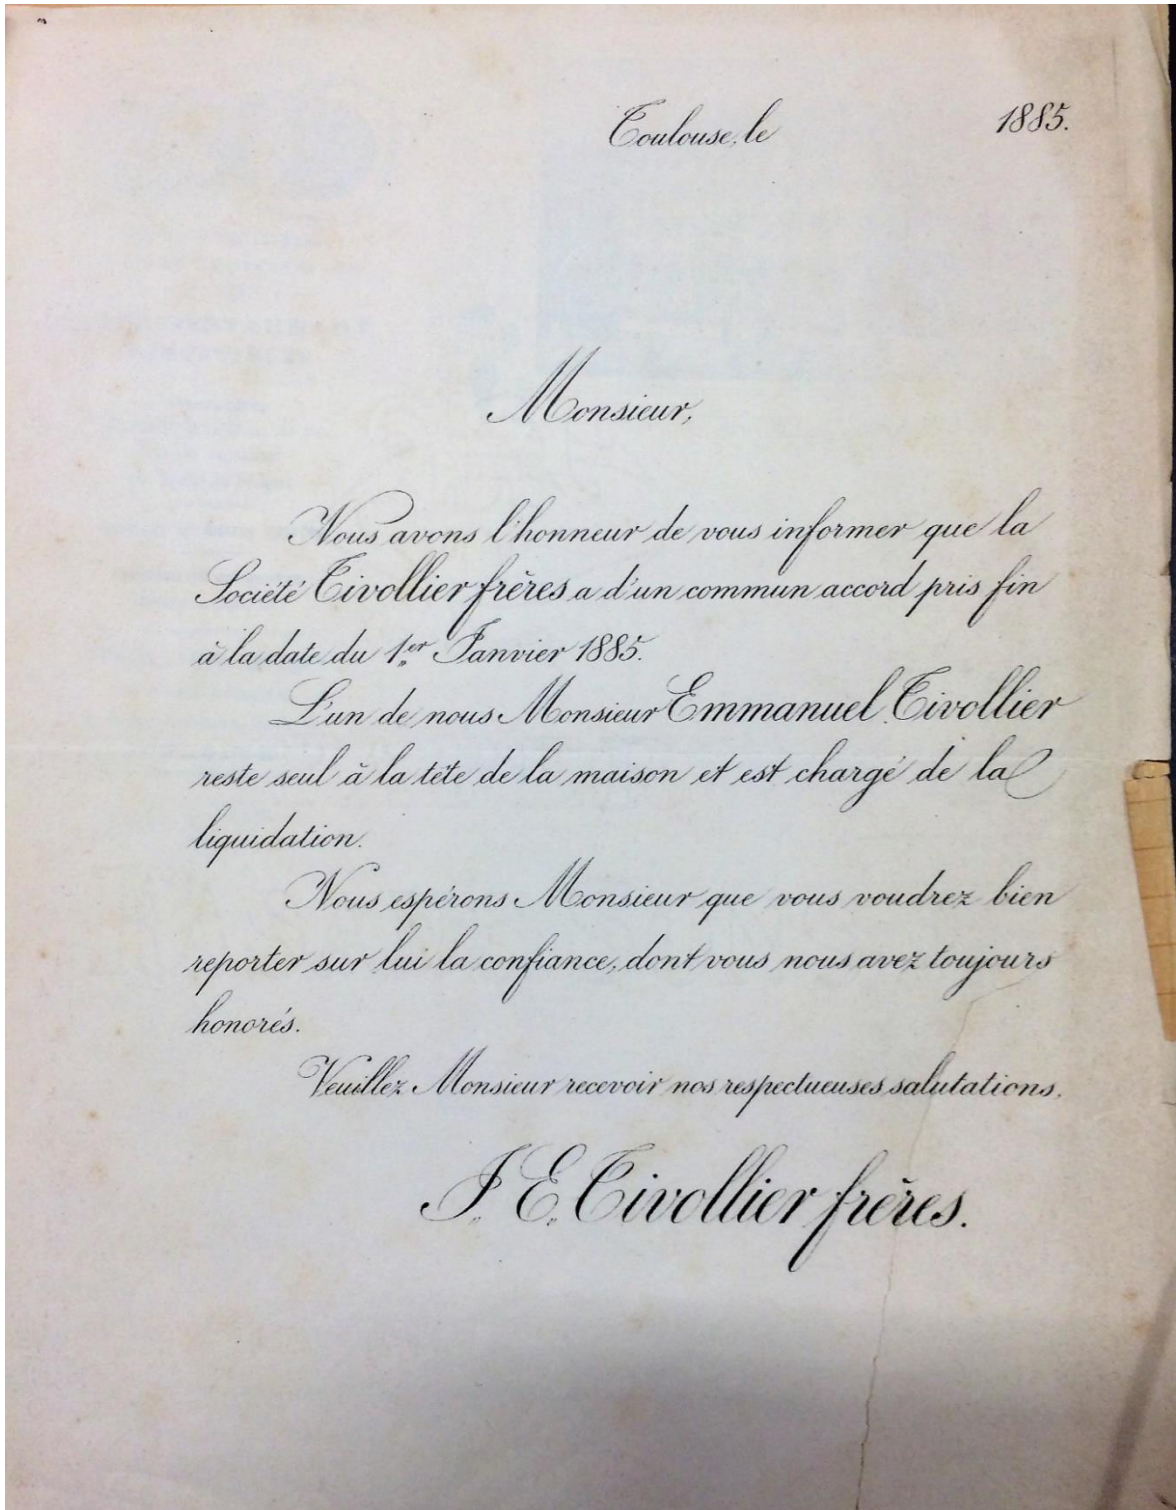 Toulouse, le 1885.
Monsieur,
Nous avons l'honneur de vous informer que la
Société Tivollier frères a d'un commun accord pris fin
à la date du 1er Janvier 1885.
L'un de nous Monsieur Emmanuel Tivollier
reste seul à la tête de la maison et est chargé de la
liquidation.
Nous espérons Monsieur que vous voudrez bien
reporter sur lui la confiance, dont vous nous avez toujours
honorés.
Veuillez Monsieur recevoir nos respectueuses salutations.
J. E. Tivollier frères.